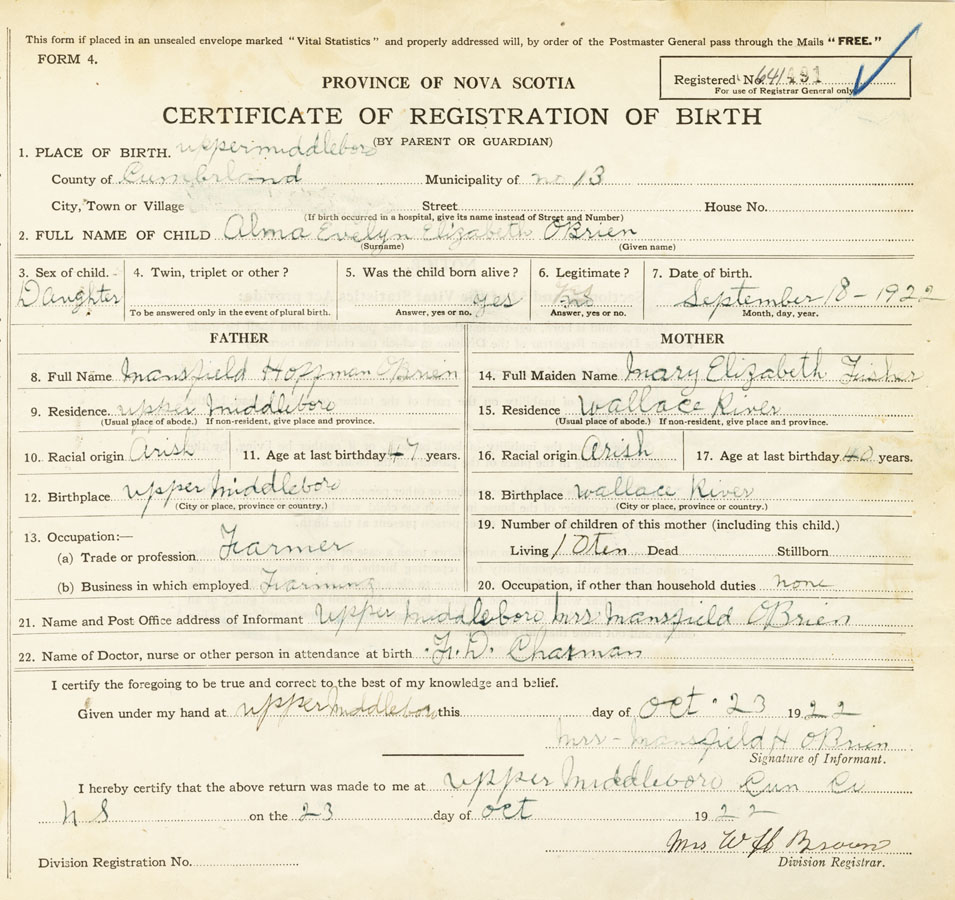 This form if placed in an unsealed envelope marked "Vital Statistics" and properly addressed will, by order of the Postmaster General pass through the Mails "FREE."
FORM 4.
Registered No. 641
For use of Registrar General only
PROVINCE OF NOVA SCOTIA
CERTIFICATE OF REGISTRATION OF BIRTH
(BY PARENT OR GUARDIAN)
1. PLACE OF BIRTH. upper middleboro
County of Cumberland Municipality of no 13
City, Town or Village Street House No.
(If birth occurred in a hospital, give its name instead of Street and Number)
2. FULL NAME OF CHILD Alma Evelyn Elizabeth OBrien
(Surname) (Given name)
3. Sex of child. Daughter
4. Twin, triplet or other?
To be answered only in the event of plural birth.
5. Was the child born alive? yes
Answer, yes or no.
6. Legitimate?
Answer, yes or no.
7. Date of birth.
September 18 - 1922
Month, day, year.
FATHER
8. Full Name Mansfield Hoffman OBrien
9. Residence. upper middleboro
(Usual place of abode.) If non-resident, give place and province.
10. Racial origin Arish 11. Age at last birthday 47 years.
12. Birthplace upper middleboro
(City or place, province or country.)
13. Occupation:—
(a) Trade or profession Farmer
(b) Business in which employed Farming
MOTHER
14. Full Maiden Name Mary Elizabeth Fisher
15. Residence Wallace River
(Usual place of abode.) If non-resident, give place and province.
16. Racial origin Arish 17. Age at last birthday 40 years.
18. Birthplace Wallace River
(City or place, province or country.)
19. Number of children of this mother (including this child.)
Living 10 ten Dead Stillborn
20. Occupation, if other than household duties none
21. Name and Post Office address of Informant Upper Middleboro Mrs Mansfield OBrien
22. Name of Doctor, nurse or other person in attendance at birth F. D. Charman
I certify the foregoing to be true and correct to the best of my knowledge and belief.
Given under my hand at upper middleboro this day of Oct 23 1922
Mrs - Mansfield H OBrien
Signature of Informant.
I hereby certify that the above return was made to me at Upper Middleboro Cum Co
N S on the 23 day of Oct 1922
Mrs W H Brown
Division Registration No. Division Registrar.